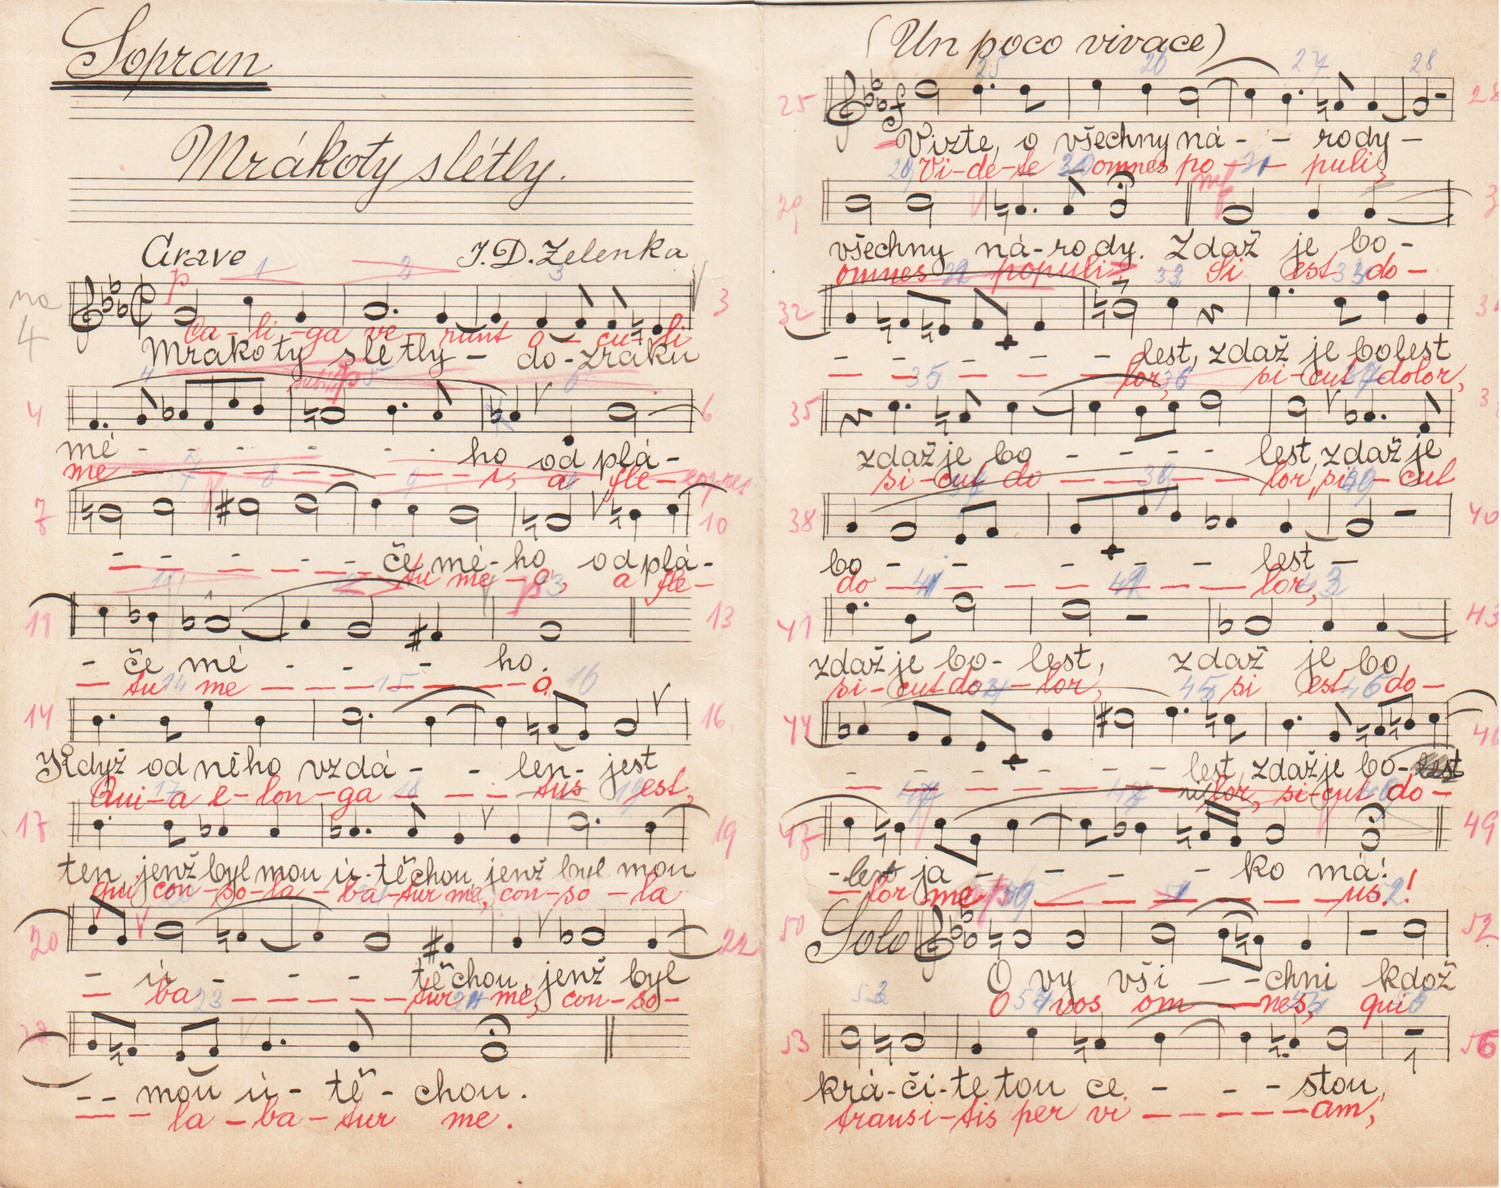 Sopran
Mrákoty slétly.
Grave
J. D. Zelenka
na
4
p
1 2 3
3
Ca-li-ga ve-runt o-cu-li
Mrákoty slétly - do-zraku
4
6
mé - - - - - - ho od plá-
me - - - - - is, a fle-
7
10
- - - - - - če mé-ho od plá-
- - - - - - tu me-o, a fle-
11
13
- če mé - - - ho.
- tu me - - - - - o
14
16
Když od něho vzdá - - len-jest
Qui-a e-lon-ga - - - - tus est,
17
19
ten, jenž byl mou ú-těchou, jenž byl mou
qui con-so-la-ba-tur me, con-so-la
20
22
- ú - - - - těchou, jenž byl
- ba - - - - - - tur me, con-so-
23
- - mou ú-tě-chou.
- - la-ba-tur me.
(Un poco vivace)
25 26 27 28
25
28
f
Vizte, o všechny ná - - rody -
Vi-de-te omnes po - - puli,
29
mf
všechny ná-rody. Zdaž je bo-
omnes populi Si est do-
32
- - - - - - lest, zdaž je bolest
- - - - - - lor, si-cut dolor,
35
zdaž je bo - - - - lest zdaž je
si-cut do - - - - lor, si-cut
38
40
bo - - - - - lest -
do - - - - - lor,
41
43
zdaž je bo-lest, zdaž je bo
si-cut do-lor, si est do-
44
46
- - - - - - - lest, zdaž je bo-lest
- - - - - - - lor, si-cut do-
47
49
-lest ja - - - - - ko má!
-lor me - - - - - us!
50
52
Solo
O vy vši - - chni kdož
O vos om - - nes, qui
53
56
krá-či-te tou ce - - - stou,
transi-tis per vi - - - - - am,